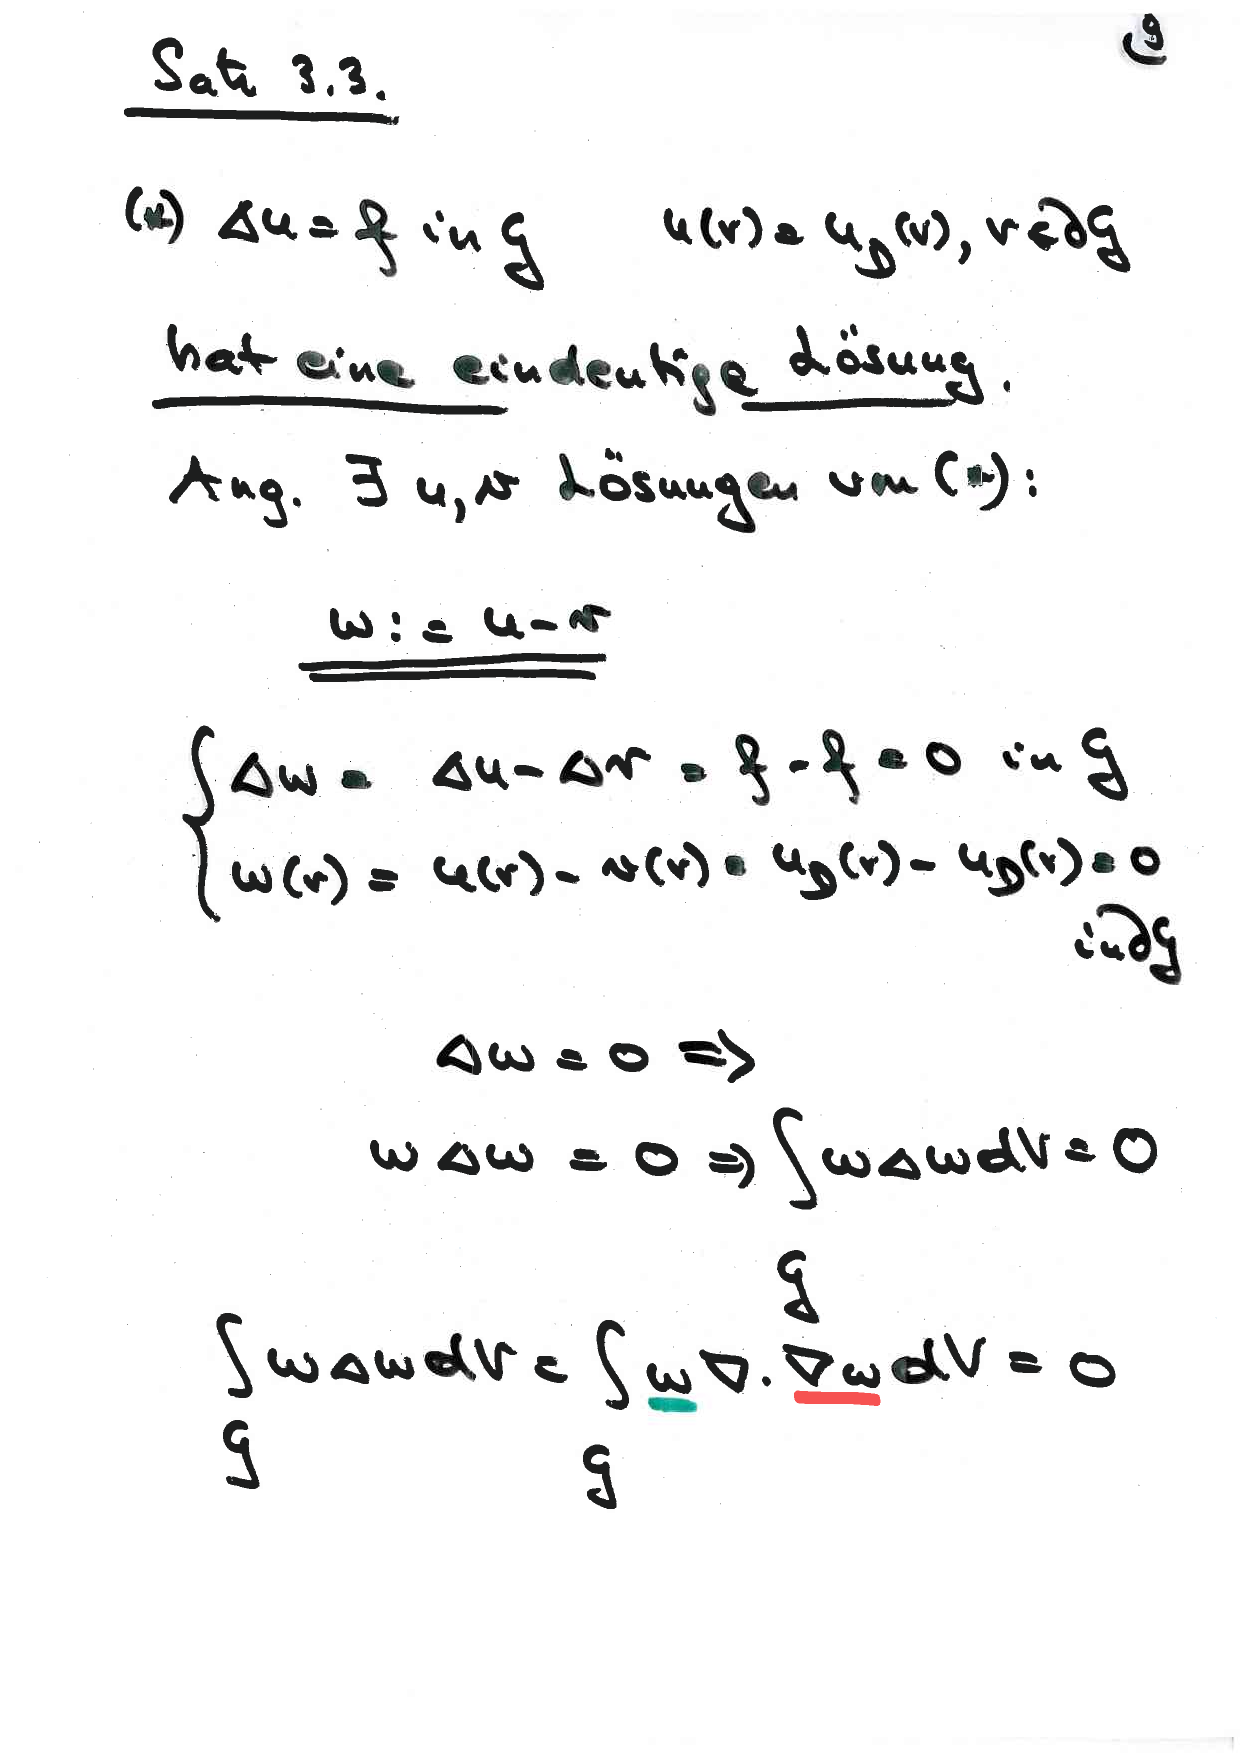 9
Satz 3.3.
(*) Δu = f in G u(r) = u_D(r), r ∈ ∂G
hat eine eindeutige Lösung.
Ang. ∃ u, v Lösungen von (*):
w := u - v
{ Δw = Δu - Δv = f - f = 0 in G
w(r) = u(r) - v(r) = u_D(r) - u_D(r) = 0
in ∂G
Δw = 0 ⇒
w Δw = 0 ⇒ ∫ w Δw dV = 0
G
∫ w Δw dV = ∫ w ∇·∇w dV = 0
G G